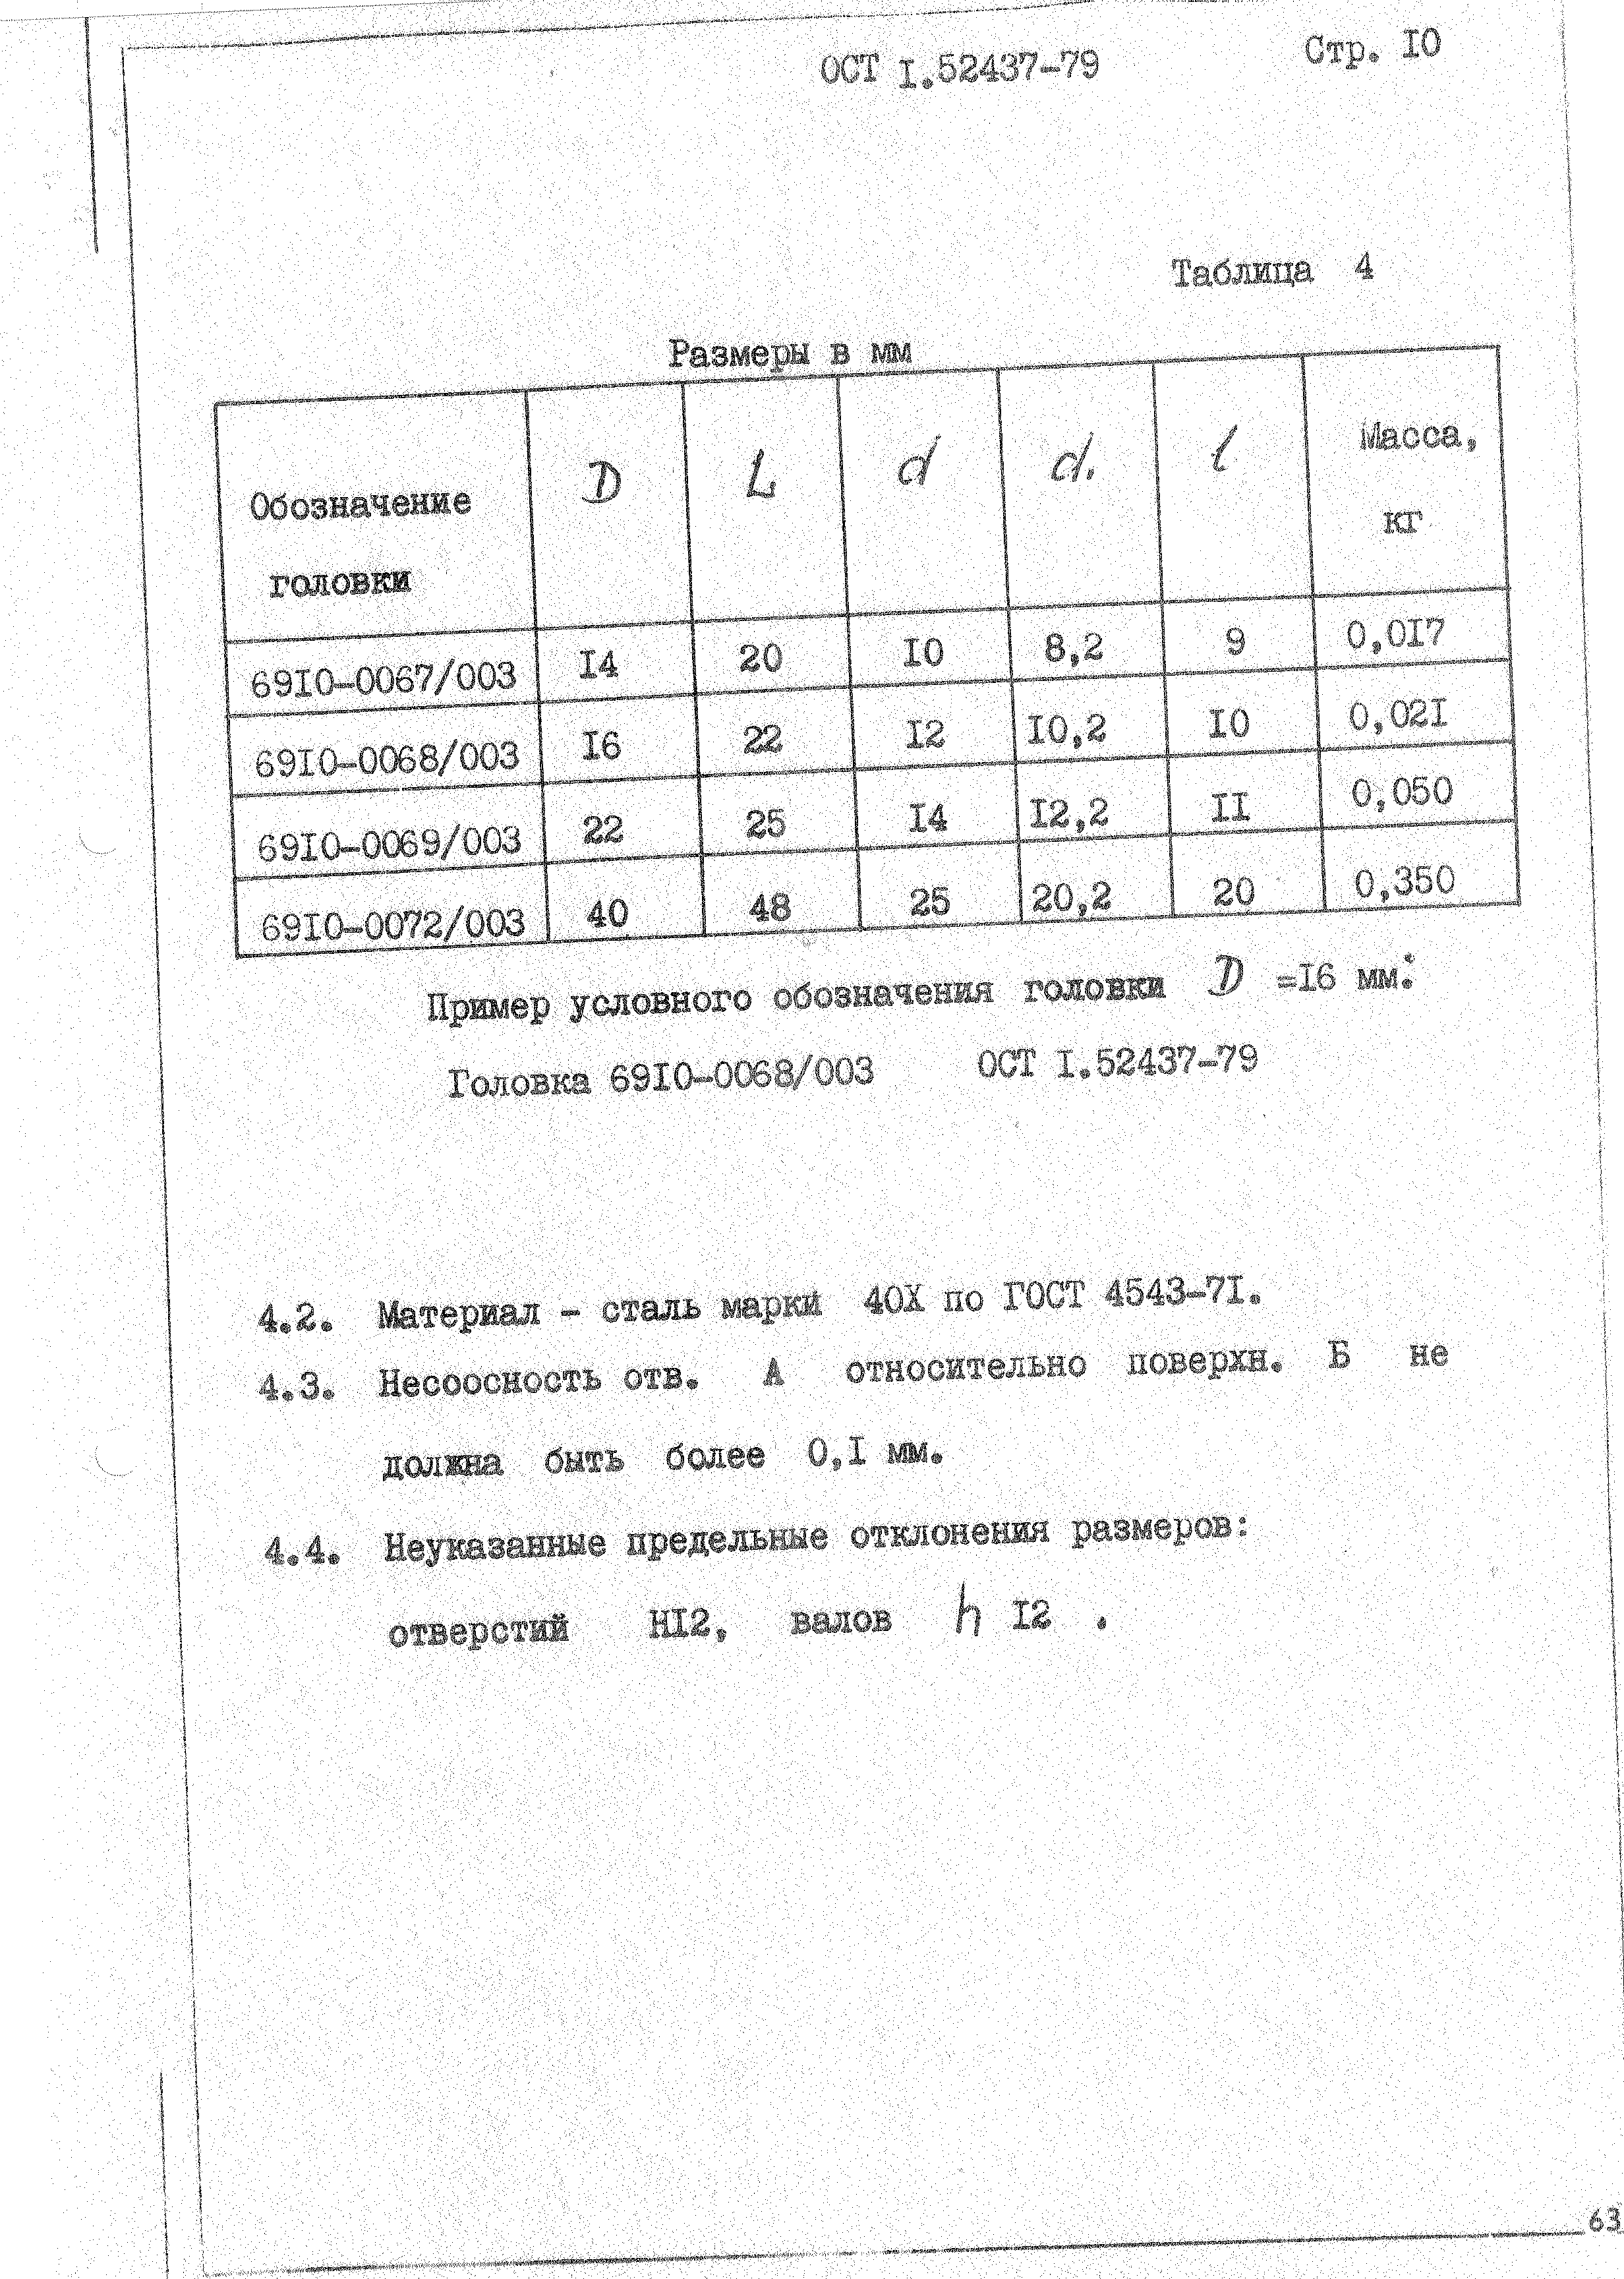 ОСТ 1.52437-79 Стр. 10
Таблица 4
Размеры в мм
Обозначение головки D L d d₁ l Масса, кг
6910-0067/003 14 20 10 8,2 9 0,017
6910-0068/003 16 22 12 10,2 10 0,021
6910-0069/003 22 25 14 12,2 11 0,050
6910-0072/003 40 48 25 20,2 20 0,350
Пример условного обозначения головки D =16 мм:
Головка 6910-0068/003 ОСТ 1.52437-79
4.2. Материал – сталь марки 40Х по ГОСТ 4543-71.
4.3. Несоосность отв. А относительно поверхн. Б не
должна быть более 0,1 мм.
4.4. Неуказанные предельные отклонения размеров:
отверстий Н12, валов h 12 .
63